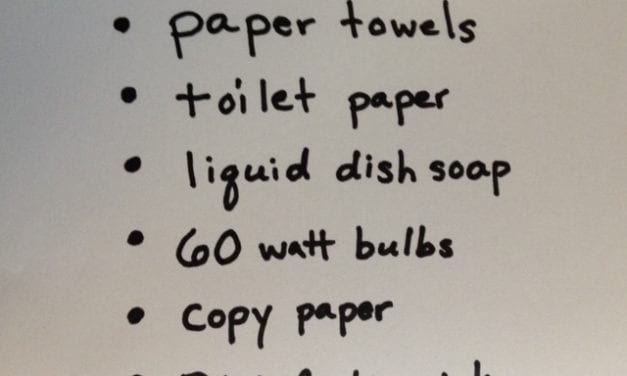 • paper towels
• toilet paper
• liquid dish soap
• 60 watt bulbs
• copy paper